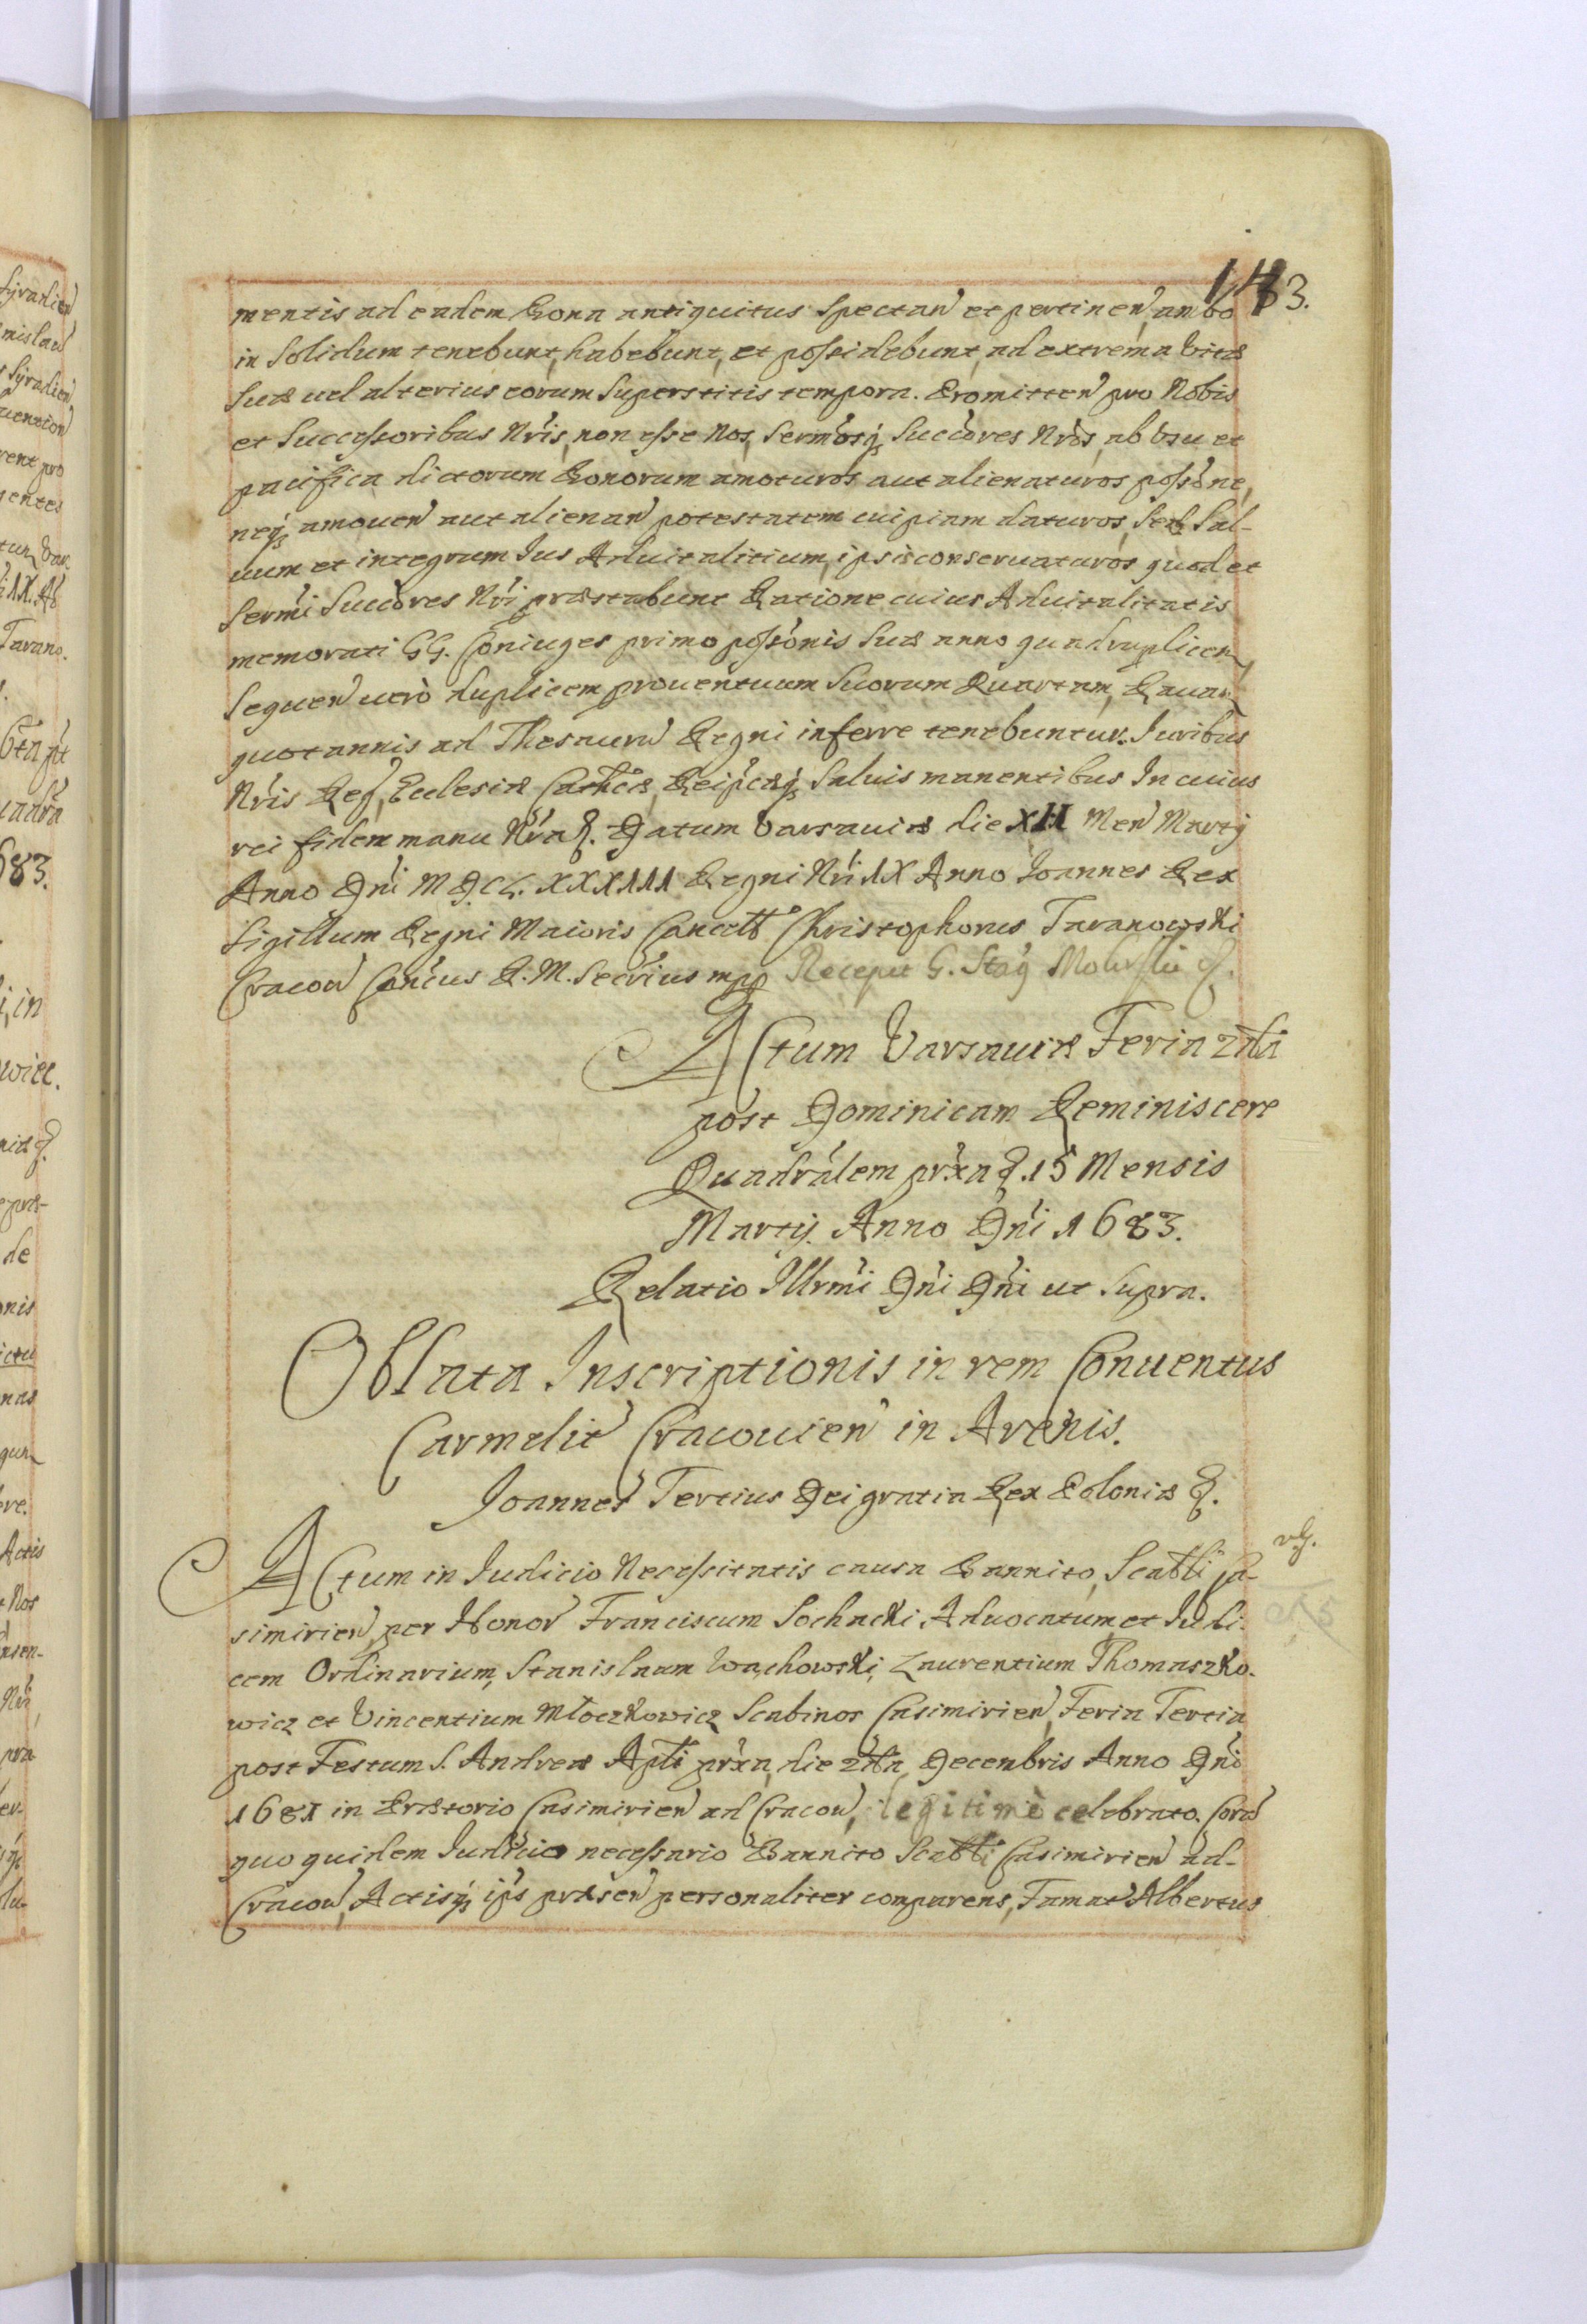 183.
mentis ad eadem Bona antiquitus Spectan et pertinen, ambo
in Solidum tenebunt, habebunt, et possidebunt, ad extrema Vitæ
Suæ uel alterius eorum Superstitis tempora. Promitten pro Nobis
et Successoribus Nris, non esse Nos, Sermosq Succores Nros, ab Vsu et
pacifica dictorum Bonorum amoturos aut alienaturos possone,
neq amouen aut alienan potestatem cuipiam daturos, Sed Sal-
uum et integrum Ius Aduitalitium, ipsis conseruaturos quod et
Sermi Succores Nri præstabunt Ratione cuius Aduitalitatis
memorati GG. Coniuges primo possonis Suæ anno quadruplicem,
Sequen uerò duplicem prouentuum Suorum Quartam,
quotannis ad Thesauru Regni inferre tenebuntur. Iuribus
Nris Reg, Ecclesiæ Cathcæ, Reipcæq Saluis manentibus In cuius
rei fidem manu Nra &. Datum Varsauiæ die XII Men Martij
Anno Dni M.DC.L.XXXIII Regni Nri IX Anno Ioannes Rex
Sigillum Regni Maioris Cancell Christophorus Taranowski
Cracou Cancus R. M. Secrius mpp Recepit G. Stag
Actum Varsauiæ Feria 2da
post Dominicam Reminiscere
Quadralem prxa &. 15 Mensis
Martij. Anno Dni 1683.
Relatio Illrmi Dni Dni ut Supra.
Oblata Inscriptionis in rem Conuentus
Carmelit Cracouien in Arenis.
Ioannes Tertius Dei gratia Rex Poloniæ &.
Actum in Iudicio Necessitatis causa Bannito, Scabli Ca-
simirien per Honor Franciscum Sochacki, Aduocatum et Iudi-
cem Ordinarium, Stanislaum Wachowski, Laurentium Thomaszko-
wicz et Vincentium Młoczkowicz Scabinos Casimirien, Feria Tertia
post Festum S. Andreæ Apli prxa, die 2da, Decembris Anno Dni
1681 in Prætorio Casimirien ad Cracou, legitimè celebrato. Cora
quo quidem Iudicio necessario Bannito Scabli Casimirien ad-
Cracou, Actisq ips præsen personaliter comparens, Famat Albertus